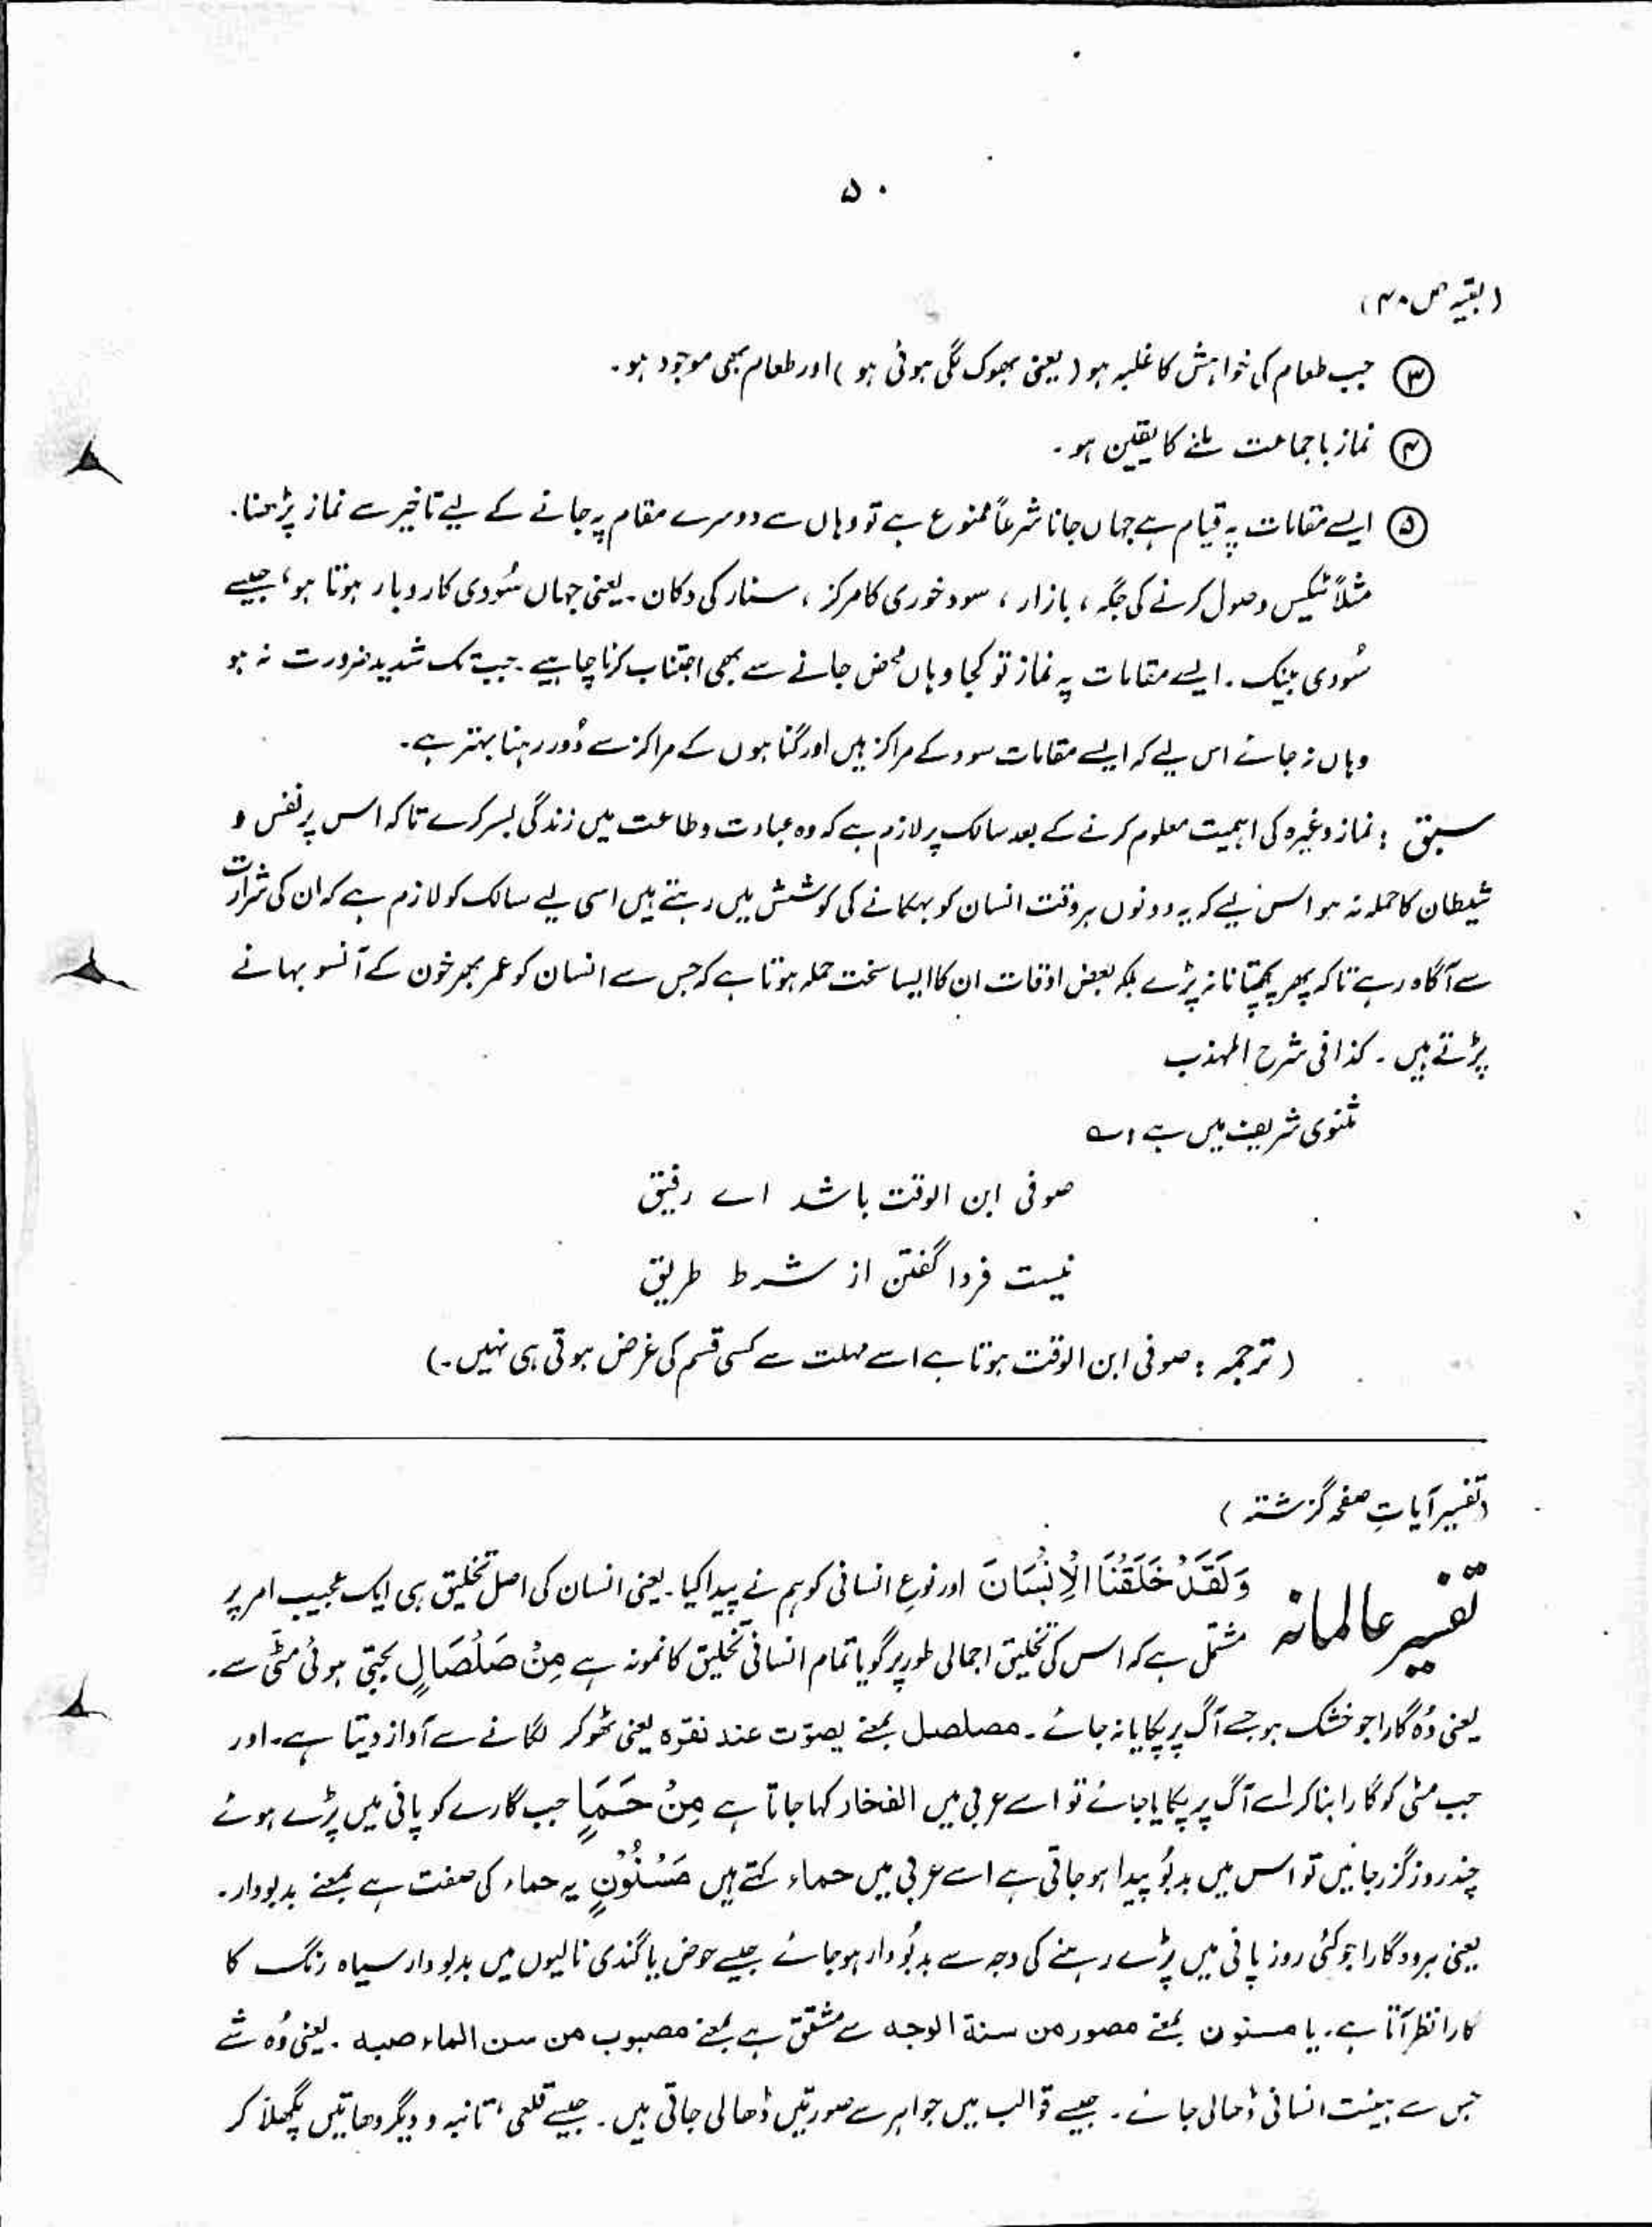 ۵۰
(بقیہ ص ۴۰)
③ جب طعام کی خواہش کا غلبہ ہو (یعنی بھوک لگی ہوئی ہو) اور طعام بھی موجود ہو۔
④ نماز باجماعت ملنے کا یقین ہو۔
⑤ ایسے مقامات پہ قیام ہے جہاں جانا شرعاً ممنوع ہے تو وہاں سے دوسرے مقام پہ جانے کے لیے تاخیر سے نماز پڑھنا۔
مثلاً ٹیکس وصول کرنے کی جگہ، بازار، سود خوری کا مرکز، سنار کی دکان۔ یعنی جہاں سُودی کاروبار ہوتا ہو، جیسے
سُودی بینک۔ ایسے مقامات پہ نماز تو کجا وہاں محض جانے سے بھی اجتناب کرنا چاہیے۔ جب تک شدید ضرورت نہ ہو
وہاں نہ جائے اس لیے کہ ایسے مقامات سود کے مراکز ہیں اور گناہوں کے مراکز سے دُور رہنا بہتر ہے۔
سبق : نماز وغیرہ کی اہمیت معلوم کرنے کے بعد سالک پر لازم ہے کہ وہ عبادت و طاعت میں زندگی بسر کرے تاکہ اس پر نفس و
شیطان کا حملہ نہ ہو اس لیے کہ یہ دونوں ہر وقت انسان کو بہکانے کی کوشش میں رہتے ہیں اسی لیے سالک کو لازم ہے کہ ان کی شرارت
سے آگاہ رہے تاکہ پھر پچھتانا نہ پڑے بلکہ بعض اوقات ان کا ایسا سخت حملہ ہوتا ہے کہ جس سے انسان کو عمر بھر خون کے آنسو بہانے
پڑتے ہیں۔ کذا فی شرح المہذب
مثنوی شریف میں ہے : ؎
صوفی ابن الوقت باشد اے رفیق
نیست فردا گفتن از شرط طریق
(ترجمہ : صوفی ابن الوقت ہوتا ہے اسے مہلت سے کسی قسم کی غرض ہوتی ہی نہیں۔)
(تفسیر آیاتِ صفحہ گزشتہ)
تفسیر عالمانہ وَلَقَدْ خَلَقْنَا الْاِنْسَانَ اور نوعِ انسانی کو ہم نے پیدا کیا۔ یعنی انسان کی اصل تخلیق ہی ایک عجیب امر پر
مشتمل ہے کہ اس کی تخلیق اجمالی طور پر گویا تمام انسانی تخلیق کا نمونہ ہے مِنْ صَلْصَالٍ بجتی ہوئی مٹی سے۔
یعنی وُہ گارا جو خشک ہو جسے آگ پر پکایا نہ جائے۔ مصلصل بمعنے یصوّت عند نقرہ یعنی ٹھوکر لگانے سے آواز دیتا ہے۔ اور
جب مٹی کو گارا بنا کر اسے آگ پر پکایا جائے تو اسے عربی میں الفخار کہا جاتا ہے مِنْ حَمَإٍ جب گارے کو پانی میں پڑے ہوئے
چند روز گزر جائیں تو اس میں بدبُو پیدا ہو جاتی ہے اسے عربی میں حماء کہتے ہیں مَسْنُوْنٍ یہ حماء کی صفت ہے بمعنے بدبودار۔
یعنی ہر وہ گارا جو کئی روز پانی میں پڑے رہنے کی وجہ سے بدبُودار ہو جائے جیسے حوض یا گندی نالیوں میں بدبودار سیاہ رنگ کا
گارا نظر آتا ہے۔ یا مسنون بمعنے مصور من سنة الوجه سے مشتق ہے بمعنے مصبوب من سن الماء صبه۔ یعنی وُہ شے
جس سے ہیئت انسانی ڈھالی جائے۔ جیسے قوالب میں جواہر سے صورتیں ڈھالی جاتی ہیں۔ جیسے قلعی، تانبہ و دیگر دھاتیں پگھلا کر